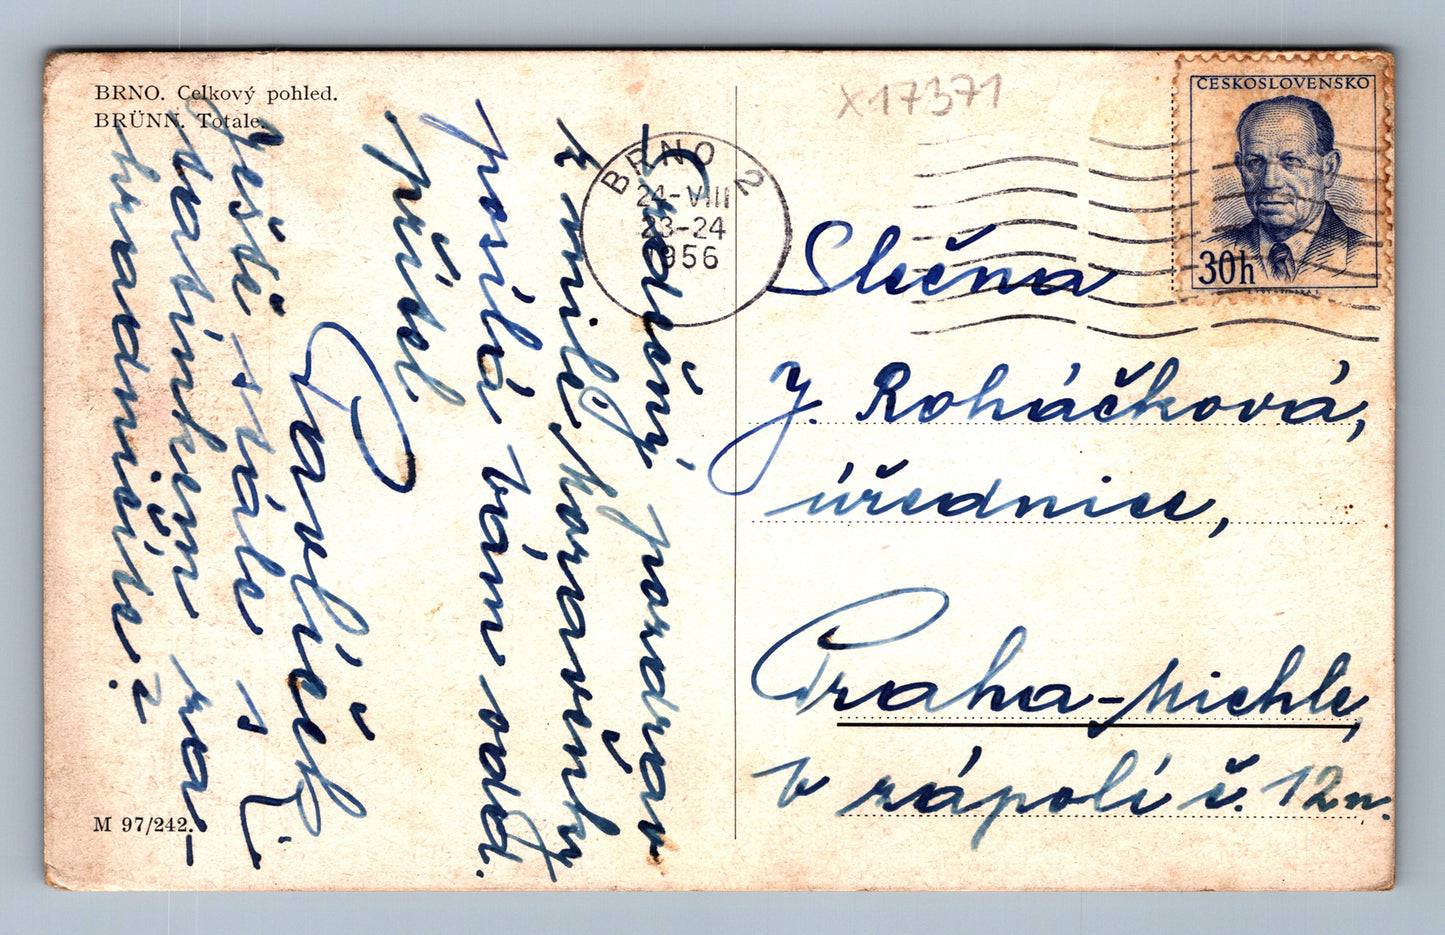 BRNO. Celkový pohled.
BRÜNN. Totale.
X17371
ČESKOSLOVENSKO
30h
BRNO 2
24-VIII
23-24
1956
Srdečný pozdrav
z milé Moravěnky
posílá vám oddd.
přítel
Pavlíček.
Ještě stále s L.
tatínkem za-
hradničíte?
Slečna
J. Roháčková,
úřednice,
Praha-Michle,
V zápolí č. 12n.
M 97/242.